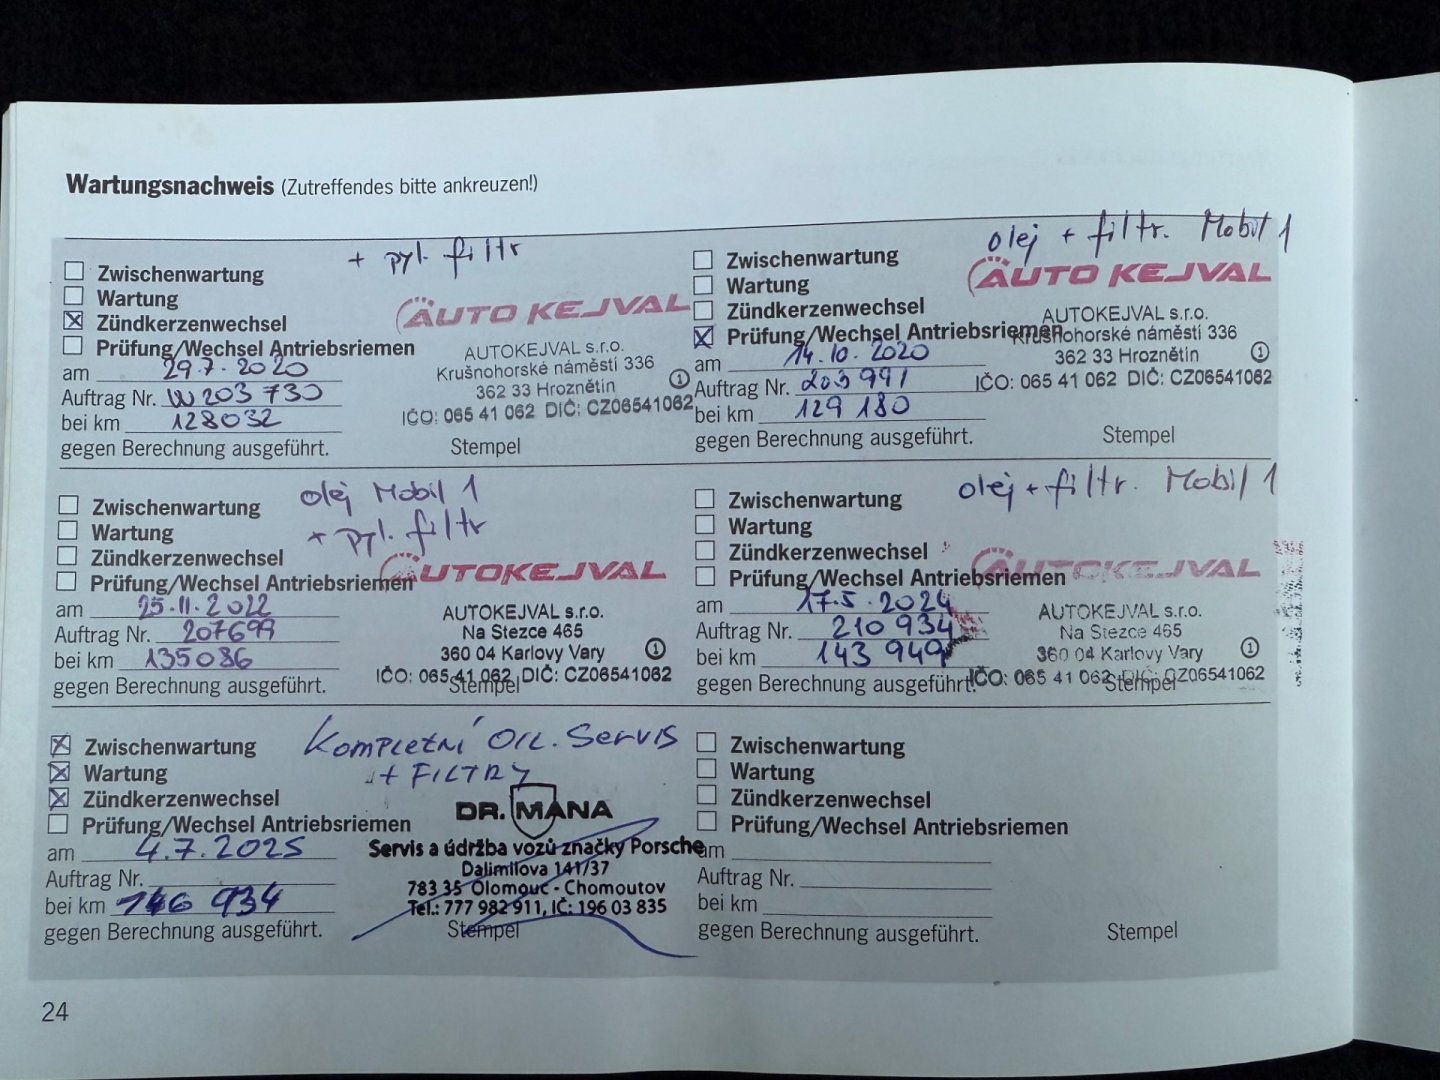 Wartungsnachweis (Zutreffendes bitte ankreuzen!)
+ pyl. filtr
Zwischenwartung
Wartung
Zündkerzenwechsel
Prüfung/Wechsel Antriebsriemen
am 29.7.2020
Auftrag Nr. W203730
bei km 128032
gegen Berechnung ausgeführt.
AUTO KEJVAL
AUTOKEJVAL s.r.o.
Krušnohorské náměstí 336
362 33 Hroznětín
①
IČO: 065 41 062 DIČ: CZ06541062
Stempel
olej + filtr. Mobil 1
Zwischenwartung
Wartung
Zündkerzenwechsel
Prüfung/Wechsel Antriebsriemen
am 14.10.2020
Auftrag Nr. 203991
bei km 129 180
gegen Berechnung ausgeführt.
AUTO KEJVAL
AUTOKEJVAL s.r.o.
Krušnohorské náměstí 336
362 33 Hroznětín
①
IČO: 065 41 062 DIČ: CZ06541062
Stempel
olej Mobil 1
+ pyl. filtr
Zwischenwartung
Wartung
Zündkerzenwechsel
Prüfung/Wechsel Antriebsriemen
am 25.11.2022
Auftrag Nr. 207699
bei km 135086
gegen Berechnung ausgeführt.
AUTOKEJVAL
AUTOKEJVAL s.r.o.
Na Stezce 465
360 04 Karlovy Vary
①
IČO: 065 41 062 DIČ: CZ06541062
Stempel
olej + filtr. Mobil 1
Zwischenwartung
Wartung
Zündkerzenwechsel
Prüfung/Wechsel Antriebsriemen
am 17.5.2024
Auftrag Nr. 210 934
bei km 143 949
gegen Berechnung ausgeführt.
AUTOKEJVAL
AUTOKEJVAL s.r.o.
Na Stezce 465
360 04 Karlovy Vary
①
IČO: 065 41 062 DIČ: CZ06541062
Stempel
KOMPLETNÍ OIL. SERVIS
+ FILTRY
Zwischenwartung
Wartung
Zündkerzenwechsel
Prüfung/Wechsel Antriebsriemen
am 4.7.2025
Auftrag Nr.
bei km 146 934
gegen Berechnung ausgeführt.
DR. MANA
Servis a údržba vozů značky Porsche
Dalimilova 141/37
783 35 Olomouc - Chomoutov
Tel.: 777 982 911, IČ: 196 03 835
Stempel
Zwischenwartung
Wartung
Zündkerzenwechsel
Prüfung/Wechsel Antriebsriemen
am
Auftrag Nr.
bei km
gegen Berechnung ausgeführt.
Stempel
24